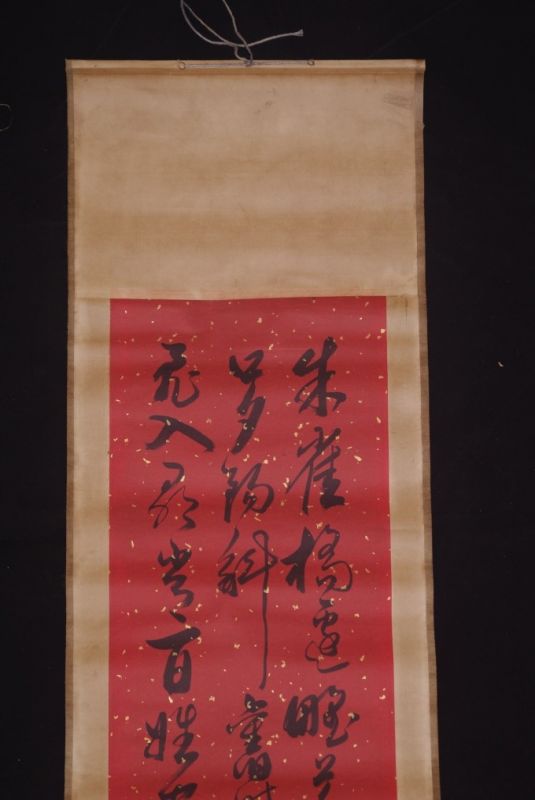 朱雀橋邊野
口夕陽斜舊時
飛入尋常百姓家